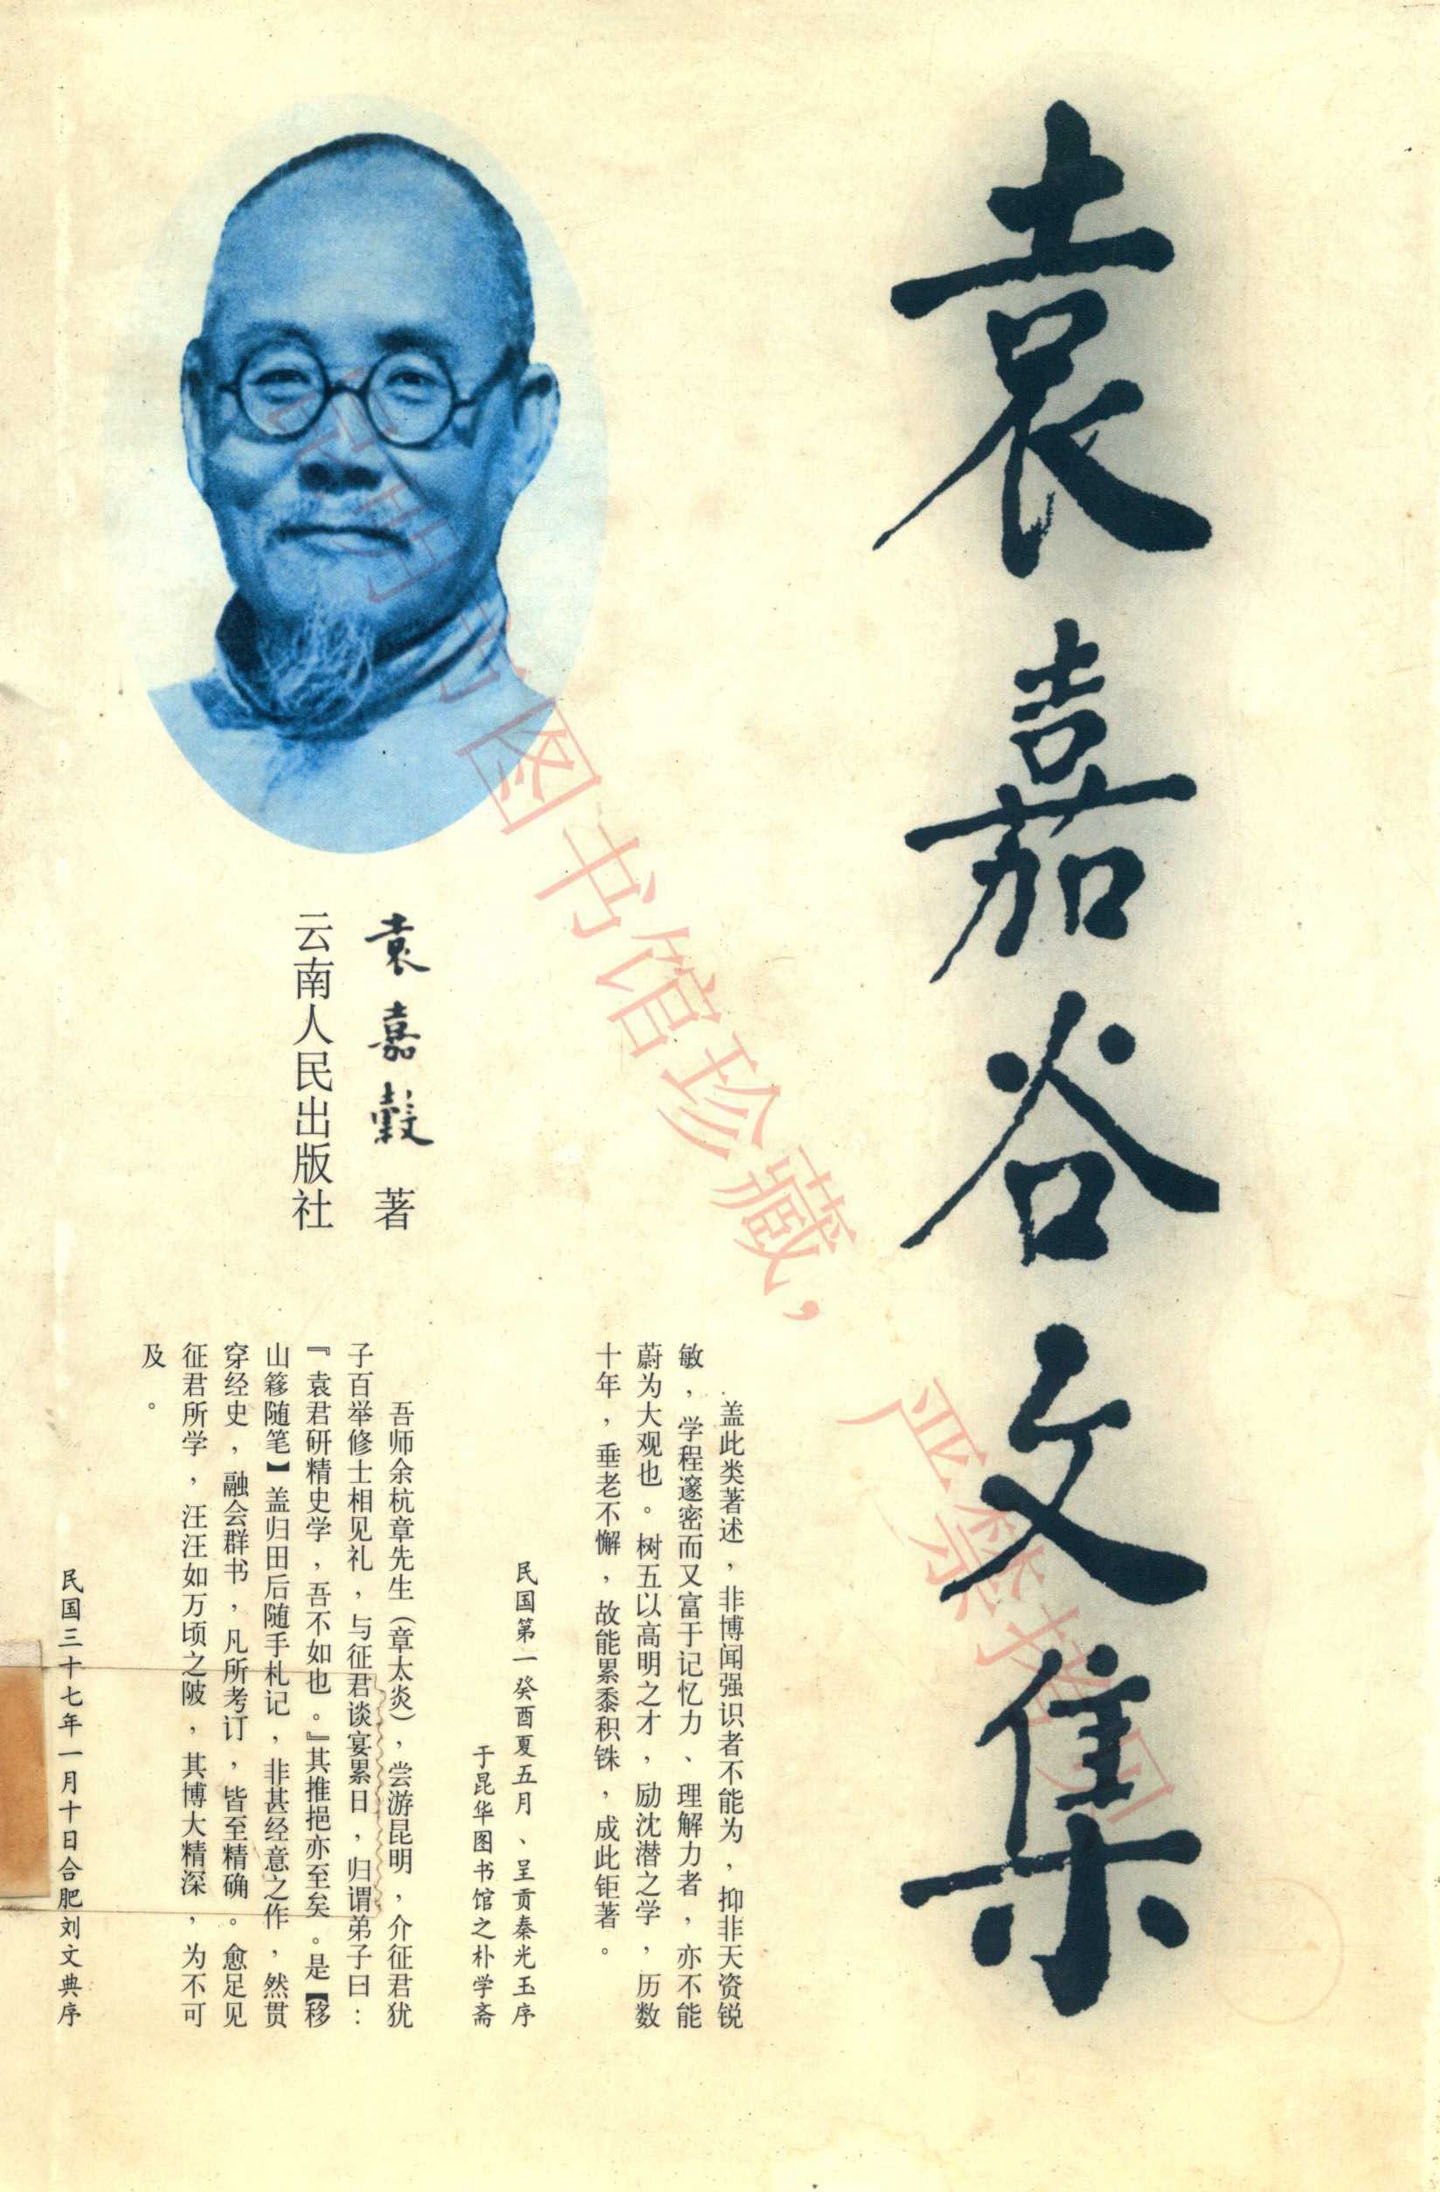 袁嘉谷文集
盖此类著述，非博闻强识者不能为，抑非天资锐
敏，学程邃密而又富于记忆力、理解力者，亦不能
蔚为大观也。树五以高明之才，励沈潜之学，历数
十年，垂老不懈，故能累黍积铢，成此钜著。
民国第一癸酉夏五月、呈贡秦光玉序
于昆华图书馆之朴学斋
袁嘉穀 著
云南人民出版社
吾师余杭章先生（章太炎），尝游昆明，介征君犹
子百举修士相见礼，与征君谈宴累日，归谓弟子曰：
『袁君研精史学，吾不如也。』其推挹亦至矣。是【移
山簃随笔】盖归田后随手札记，非甚经意之作，然贯
穿经史，融会群书，凡所考订，皆至精确。愈足见
征君所学，汪汪如万顷之陂，其博大精深，为不可
及。
民国三十七年一月十日合肥刘文典序
图书馆珍藏，
严禁